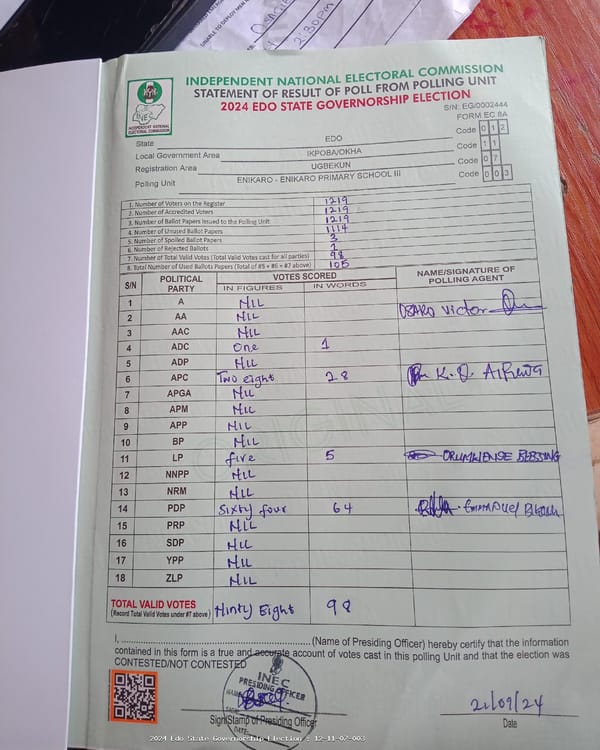 2:30pm
INEC
INDEPENDENT NATIONAL ELECTORAL COMMISSION
INDEPENDENT NATIONAL ELECTORAL COMMISSION
STATEMENT OF RESULT OF POLL FROM POLLING UNIT
2024 EDO STATE GOVERNORSHIP ELECTION
S/N: EG/0002444
FORM EC 8A
State EDO Code 0 1 2
Local Government Area IKPOBA/OKHA Code 1 1
Registration Area UGBEKUN Code 0 7
Polling Unit ENIKARO - ENIKARO PRIMARY SCHOOL III Code 0 0 3
1. Number of Voters on the Register 1219
2. Number of Accredited Voters 1219
3. Number of Ballot Papers Issued to the Polling Unit 1219
4. Number of Unused Ballot Papers 1114
5. Number of Spoiled Ballot Papers 3
6. Number of Rejected Ballots
7. Number of Total Valid Votes (Total Valid Votes cast for all parties) 98
8. Total Number of Used Ballots Papers (Total of #5 + #6 + #7 above) 105
S/N POLITICAL PARTY VOTES SCORED NAME/SIGNATURE OF POLLING AGENT
IN FIGURES IN WORDS
1 A NIL
2 AA NIL OSARO Victor
3 AAC NIL
4 ADC One 1
5 ADP NIL
6 APC Two eight 28 K. O.
7 APGA NIL
8 APM NIL
9 APP NIL
10 BP NIL
11 LP five 5 ORUMWENSE BLESSING
12 NNPP NIL
13 NRM NIL
14 PDP Sixty four 64 Emmanuel
15 PRP NIL
16 SDP NIL
17 YPP NIL
18 ZLP NIL
TOTAL VALID VOTES Ninty Eight 98
(Record Total Valid Votes under #7 above)
ORIGINAL
I, ........................ (Name of Presiding Officer) hereby certify that the information
contained in this form is a true and accurate account of votes cast in this polling Unit and that the election was
CONTESTED/NOT CONTESTED
INEC
PRESIDING OFFICER
NAME
SIGN
DATE
Sign/Stamp of Presiding Officer
21/09/24
Date
2024 Edo State Governorship Election : 12-11-07-003